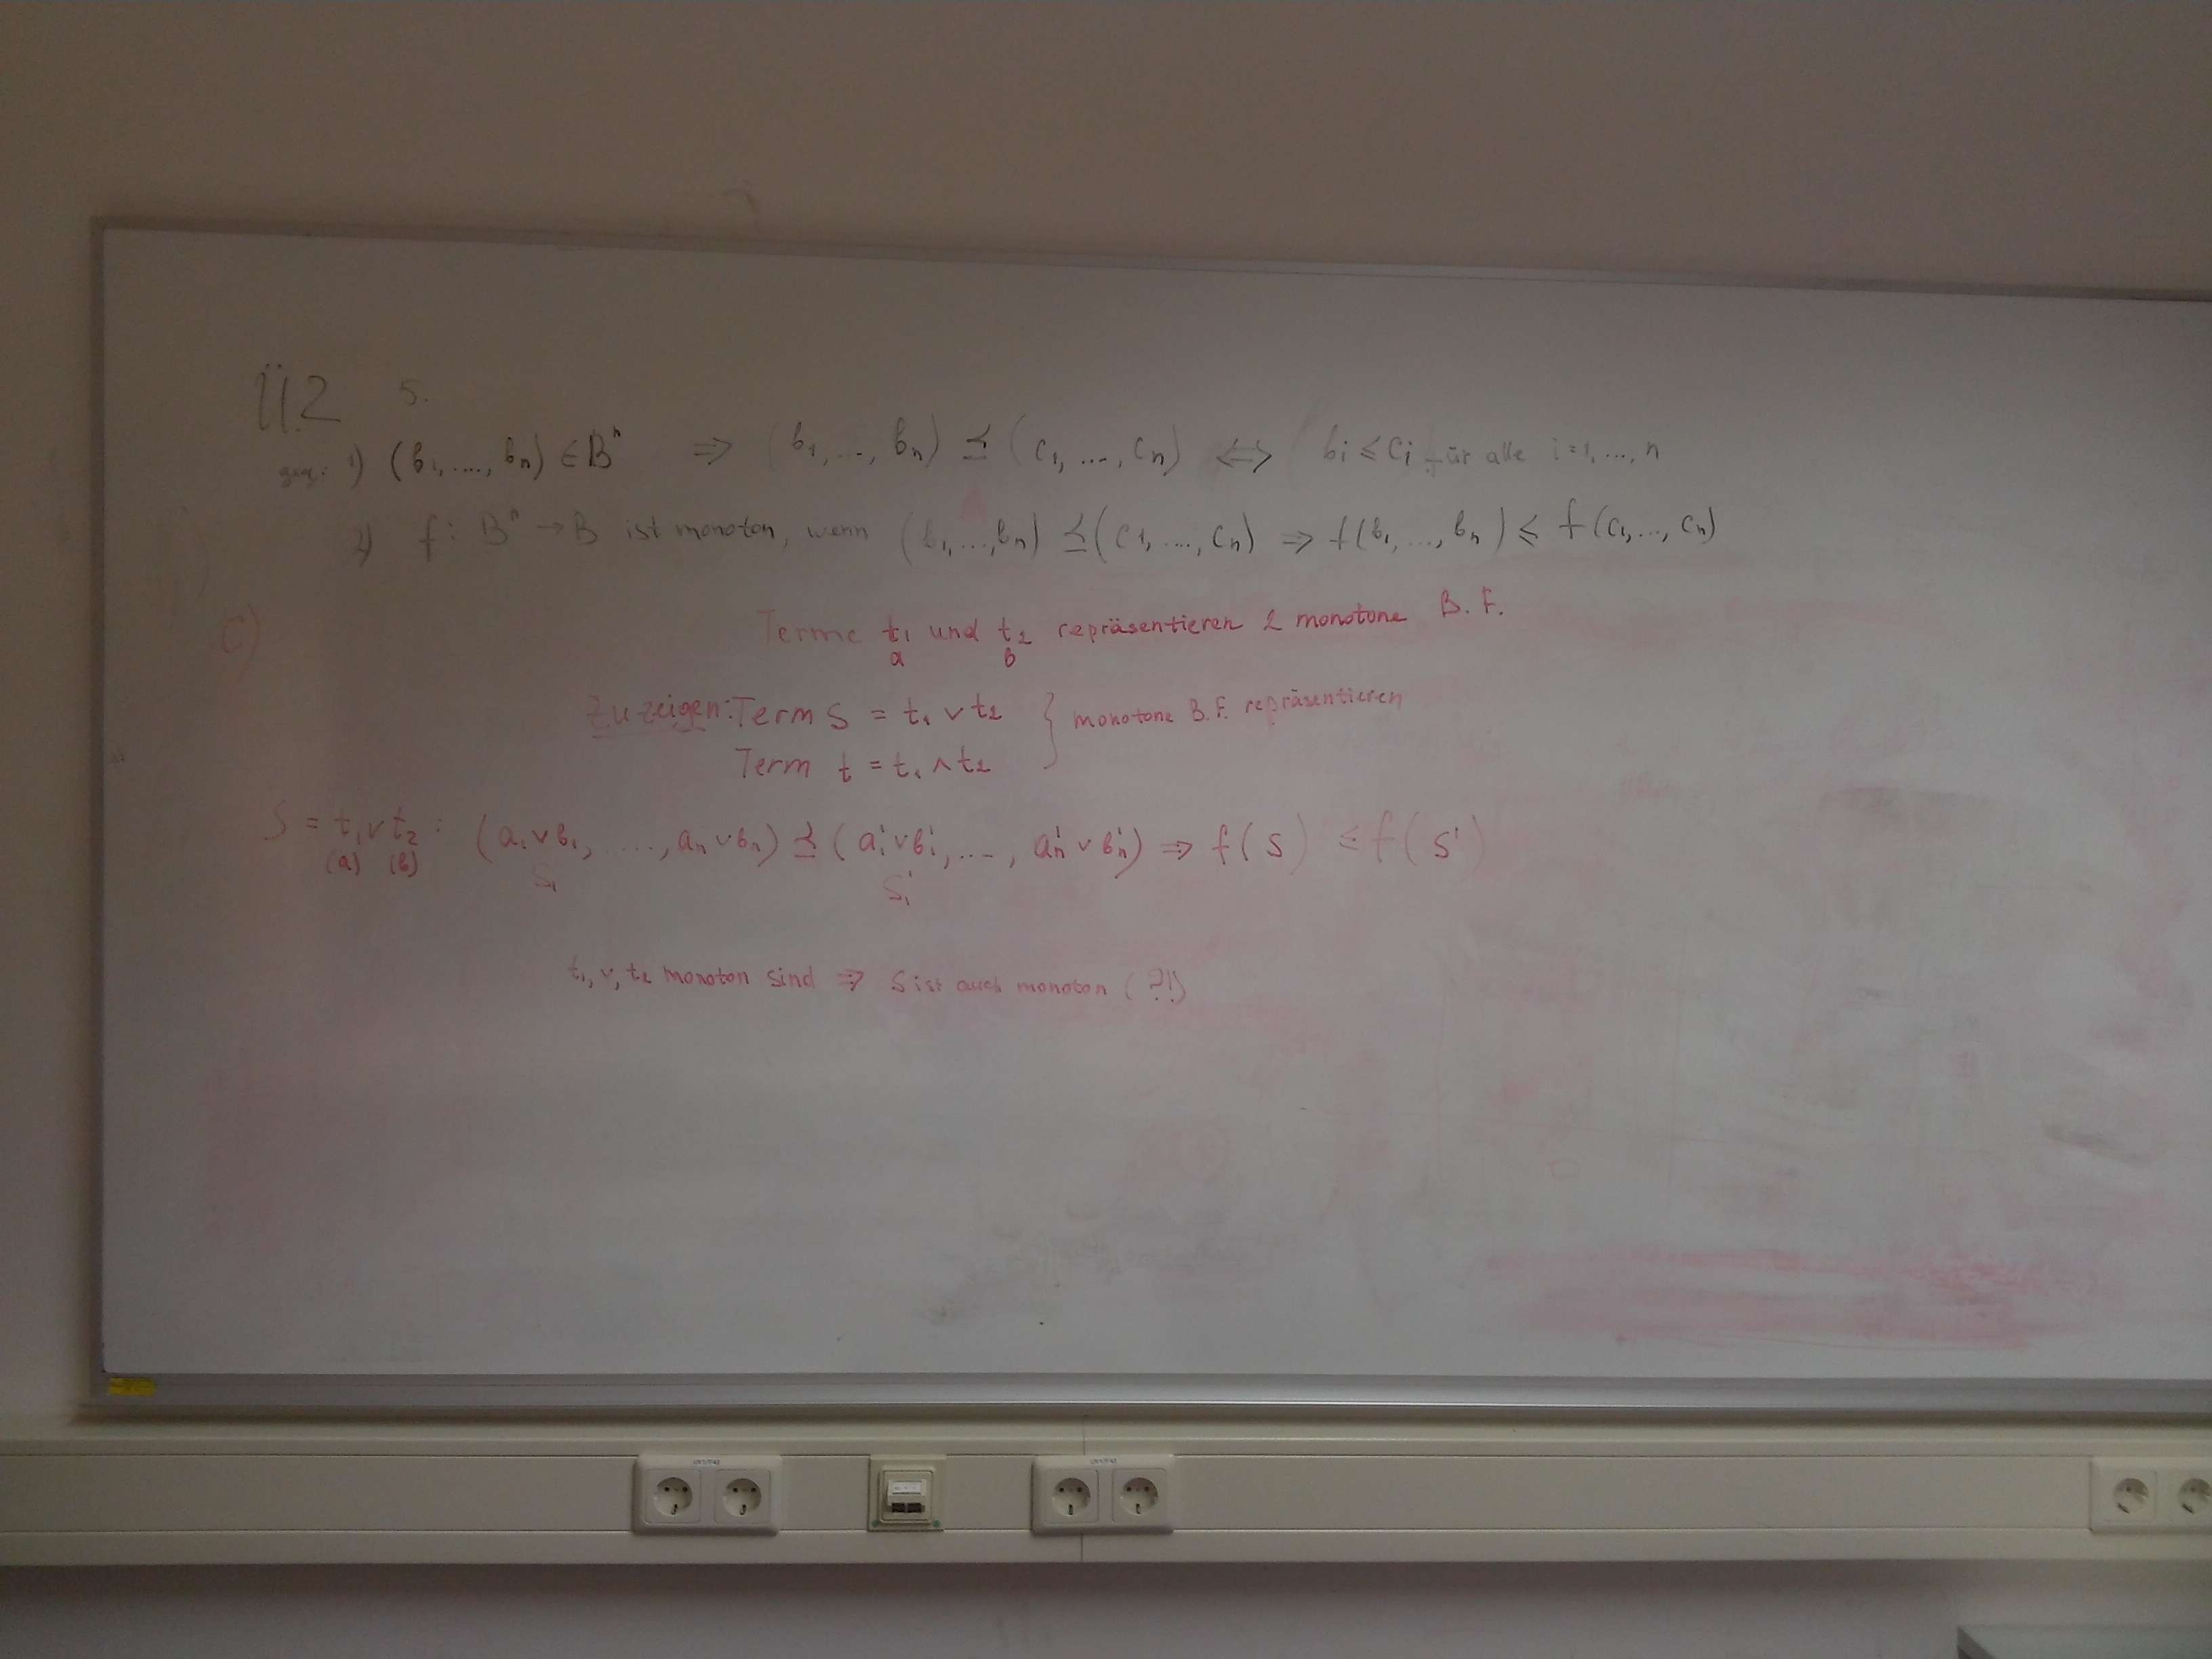 Ü2 5.
geg: 1) (b₁, ...., bₙ) ∈ Bⁿ ⇒ (b₁, ..., bₙ) ⪯ (c₁, ...., cₙ) ⇔ bi ≤ ci für alle i = 1, ..., n
2) f: Bⁿ → B ist monoton, wenn (b₁, ..., bₙ) ⪯ (c₁, ..., cₙ) ⇒ f(b₁, ..., bₙ) ≤ f(c₁, ..., cₙ)
c) Terme t₁ und t₂ repräsentieren 2 monotone B. F.
a b
Zu zeigen: Term S = t₁ ∨ t₂ } monotone B. F. repräsentieren
Term t = t₁ ∧ t₂
S = t₁ ∨ t₂ : (a₁ ∨ b₁, ...., aₙ ∨ bₙ) ⪯ (a₁' ∨ b₁', ...., aₙ' ∨ bₙ') ⇒ f(s) ≤ f(s')
(a) (b) S₁ S₁'
t₁, ∨, t₂ monoton sind ⇒ S ist auch monoton (?!)